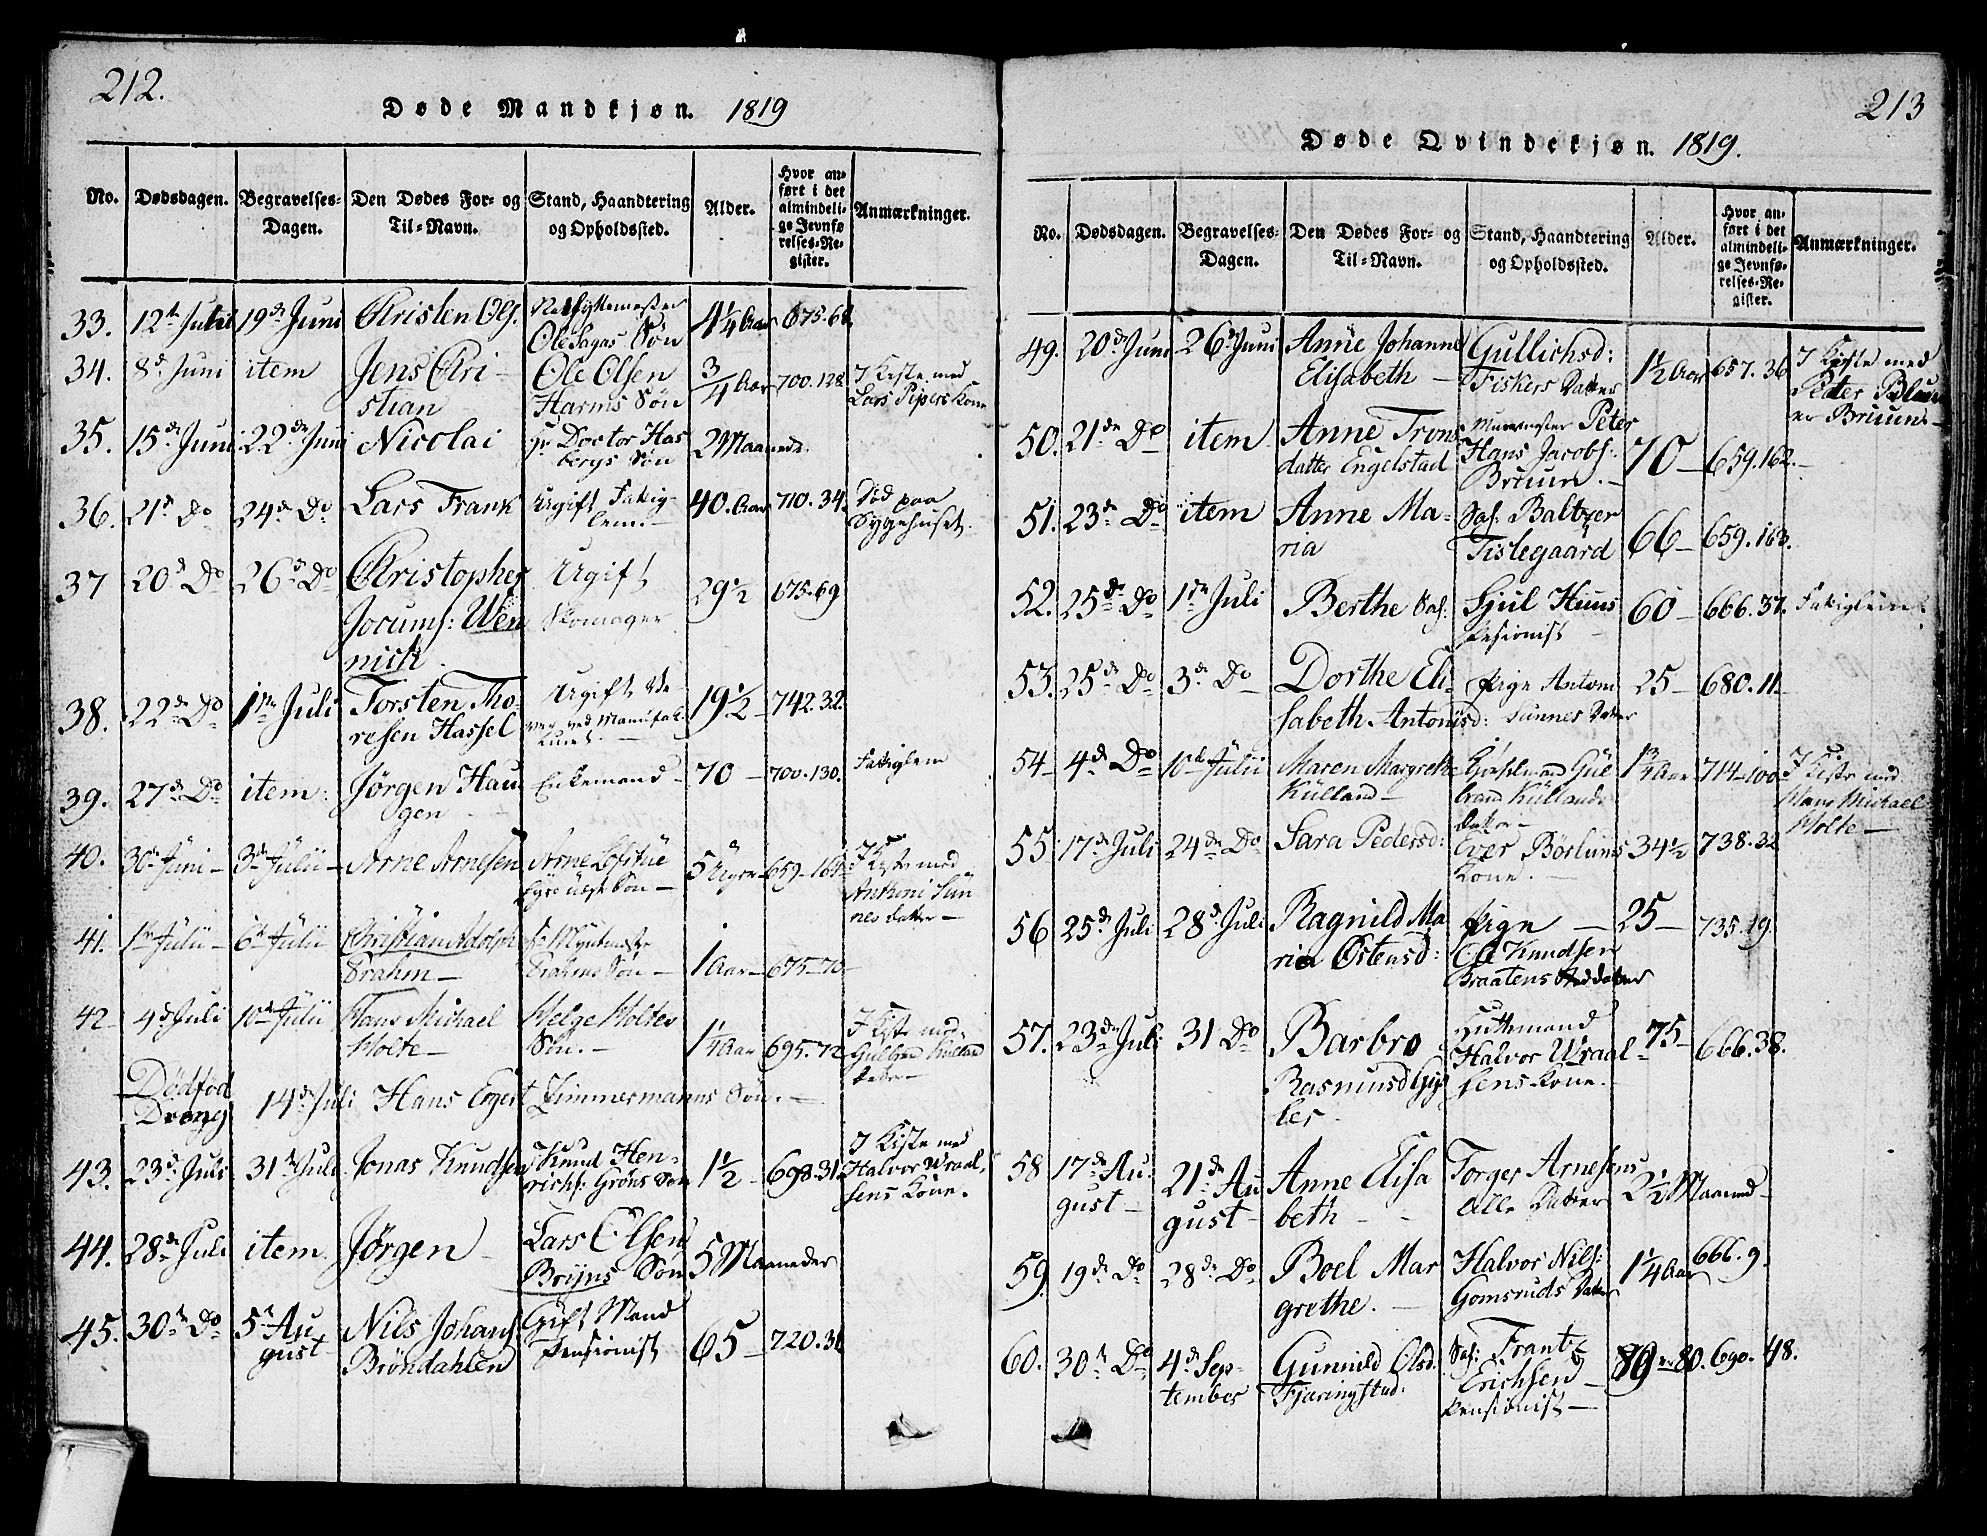 212.
Døde Mandkjøn. 1819
No. Dødsdagen. Begravelses-Dagen. Den Dødes For- og Til-Navn. Stand, Haandtering og Opholdssted. Alder. Hvor anført i det almindelige Jevnførelses-Register. Anmærkninger.
33. 19de Juni Christen Ols. Ole Sagas Søn 4 1/4 Aar 675.68
34. 8de Juni item Jens Christian Ole Olsen Harms Søn 3/4 Aar 700.128 I Kiste med Lars Pipers Kone
35. 15de Juni 22de Juni Nicolai Hr Doctor Hasbergs Søn 2 Maaneder
36. 21de Do 24de Do Lars Frank Ugift Fattiglem. 40 Aar 710.34. Død paa Sygehuset.
37 20de Do 26de Do Christopher Jocums: Wennich. Ugift Skomager 29 1/2 675.69
38. 22de Do 1ste Juli Torsten Thoresen Hassel Ugift 19 1/2 742.32.
39. 27de Do item Jørgen Haugen Enkemand 70 700.130. Fattiglem
40. 30te Juni 3de Julii Arne Arnesen Søn 5 Uger 659 I Kiste med
41. 1ste Julii 6te Julii Christian Adolph Prahm Hr Myntmester Prahms Søn 1 Aar 675-70
42 4de Juli 10de Julii Hans Michael Holte Helge Holtes Søn. 1 1/4 Aar 695.72 I Kiste med Gulbrand Külland Datter
Dødfød Dreng 14de Juli Hans Engert Zimmermanns Søn.
43. 23de Juli 31te Juli Jonas Knudsen Knud Henrichs: Gröns Søn 1 1/2 698.31 I Kiste med Halvor Wraalsens Kone.
44. 28de Juli item Jørgen Lars Olsen Bryns Søn 5 Maaneder
45. 30te Do 5te August Nils Johans: Brøndahlen Gift Mand Pensionist 65 720.31
213
Døde Qvindekjøn. 1819.
No. Dødsdagen. Begravelses-Dagen. Den Dødes For- og Til-Navn. Stand, Haandtering og Opholdssted. Alder. Hvor anført i det almindelige Jevnførelses-Register. Anmærkninger.
49. 20de Juni 26te Juni Anne Johanne Elisabeth Gullichsd: Fiskers Datter 1 1/2 Aar 657.36 I Kiste med Peter
50. 21de Do item Anne Tronsdatter Engelstad Murmester Peter Hans Jacobs: Bruun. 70 659.162.
51. 23de Do item Anne Maria Sal: Baltzer Tislegaard 66 659.163.
52. 25de Do 1ste Juli Berthe Sal: Sjul Huus Pesionist 60 666.37. Fattiglem
53. 25de Do 3de Do Dorthe Elisabeth Antonisd: Pige Antoni Sunnes Datter 25 680.11
54 4de Do 10de Julii Maren Margrethe Külland Gulbrand Küllands Datter 1 3/4 Aar 714-100 I Kiste med Hans Michael Holte
55 17de Juli 24de Do Sara Pedersd: Ever Börlunds Kone. 34 1/2 738.32
56 25de Juli 28de Juli Ragnild Maria Østensd: Pige Ole Knudsen Braatens Steddatter 25 735.19
57. 23de Juli 31 Do Barbro Rasmusd Huttemand Halvor Wraalsens Kone. 75 666.38.
58 17de August 21de August Anne Elisabeth Torger Arnesens Datter 2 1/2 Maaned
59. 19de Do 28de Do Boel Margrethe. Halvor Nils: Gomsruds Datter 1 1/4 Aar 666.9.
60. 30te Do 4de September Gunnild Olsd. Fjeringstad. Sal: Frantz Erichsen Pensionist 80. 690.48.